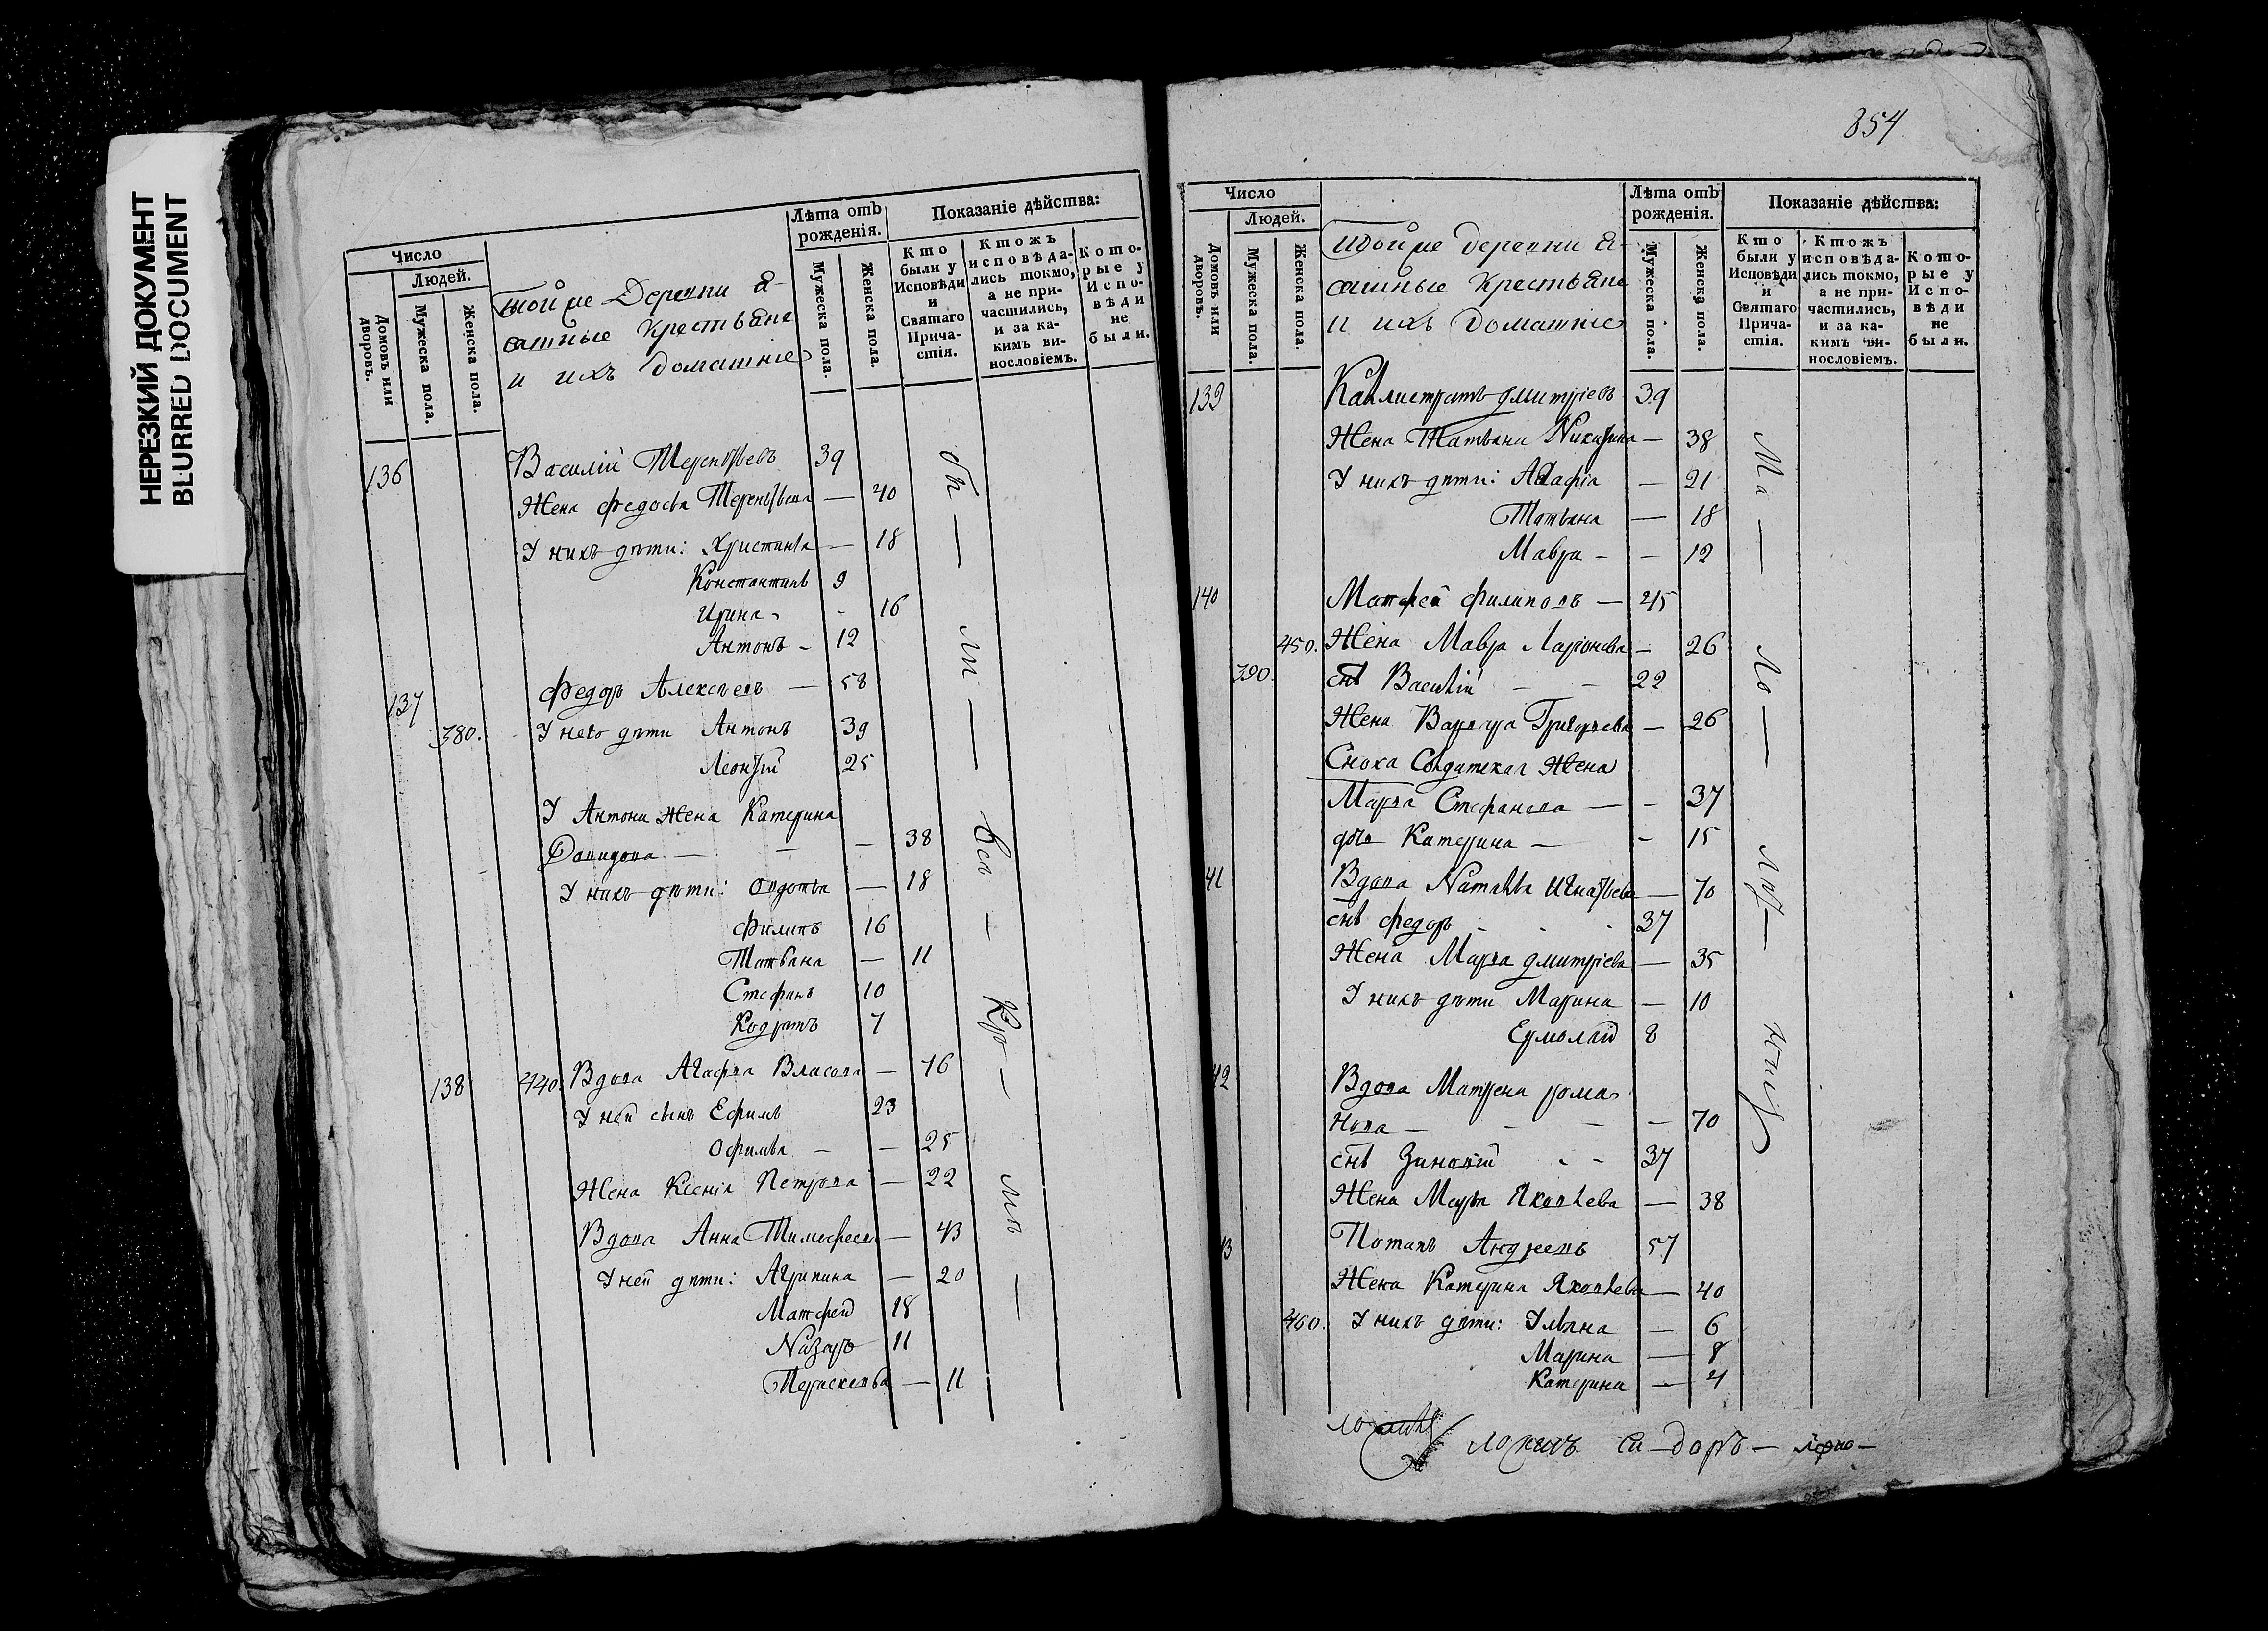 НЕРЕЗКИЙ ДОКУМЕНТ
BLURRED DOCUMENT
Число
Людей.
Домовъ или дворовъ.
Мужеска пола.
Женска пола.
Тойже Деревни Я-
сашные Крестьяне
и ихъ домашніе
Лѣта отъ
рожденія.
Мужеска пола.
Женска пола.
Показаніе дѣйства:
Кто были у Исповѣди и Святаго Прича-стія.
Ктожъ исповѣда-лись токмо, а не при-частились, и за ка-кимъ ви-нословіемъ.
Кото-рые у Испо-вѣди не были.
136 Василій Терентьевъ 39
Жена Федосья Терентьева — 40
У нихъ дѣти: Христинья — 18
Константинъ 9
Ирина - - 16
Антонъ - 12
137 Федоръ Алексѣевъ — 58
380. У него дѣти Антонъ 39
Леонтій 25
У Антона Жена Катерина
Давидова — — — 38
У нихъ дѣти: Овдотья — 18
Филипъ 16
Татьяна — 11
Стефанъ 10
Кодратъ 7
138 440. Вдова Агафья Власова — 46
У ней сынъ Ефимъ 23
Офимья — — 25
Жена Ксенія Петрова — 22
Вдова Анна Тимофеева — 43
У ней дѣти: Агрипина — 20
Матфей 18
Назаръ 11
Персковья — 11
854
Число
Людей.
Домовъ или дворовъ.
Мужеска пола.
Женска пола.
Тойже Деревни Я-
сашные Крестьяне
и ихъ домашніе
Лѣта отъ
рожденія.
Мужеска пола.
Женска пола.
Показаніе дѣйства:
Кто были у Исповѣди и Святаго Прича-стія.
Ктожъ исповѣда-лись токмо, а не при-частились, и за ка-кимъ ви-нословіемъ.
Кото-рые у Испо-вѣди не были.
139 Каллистратъ Дмитріевъ 39
Жена Татьяна Никитина — 38
У нихъ дѣти: Агафія — 21
Татьяна — 18
Мавра - - 12
140 Матфей Филиповъ — 45
450. Жена Мавра Ларіонова — 26
390. снъ Василій — — 22
Жена Варвара Григорьева — 26
Сноха Солдатская Жена
Марѳа Стефанова — - 37
дочь Катерина — - 15
41 Вдова Наталья Игнатьева — 70
снъ Федоръ - - - 37
Жена Марѳа Дмитріева — 35
У нихъ дѣти Марина — 10
Ермолай 8
42 Вдова Матрена Рома-
нова — - — — 70
снъ Зиновій - - 37
Жена Марья Яковлева — 38
Потапъ Андреевъ 57
Жена Катерина Яковлева — 40
460. У нихъ дѣти: Ульяна — 6
Марина — 8
Катерина — 4
Си-доръ —